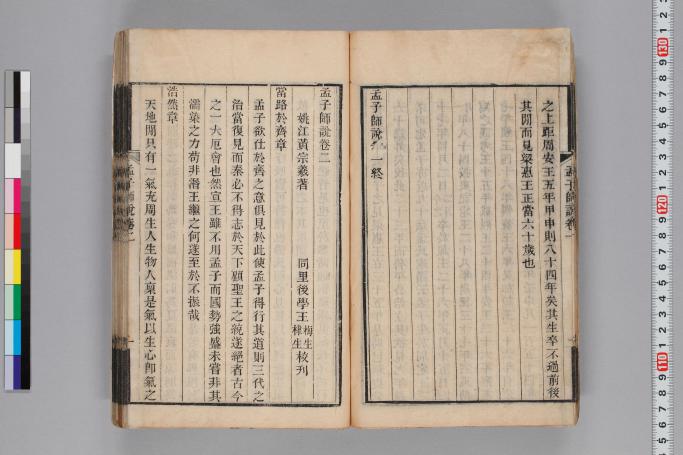 之上距周安王五年甲申則八十四年矣其生卒不過前後
其閒而見梁惠王正當六十歲也
孟子師說卷一終
孟子師說卷一
孟子師說卷二
姚江黃宗羲著 同里後學王梅生棣生校刋
當路於齊章
孟子欲仕於齊之意俱見於此使孟子得行其道則三代之
治當復見而秦必不得志於天下顧聖王之統遂絕者古今
之一大厄會也然宣王雖不用孟子而國勢強盛未嘗非其
濡染之力苟非湣王繼之何遂至於不振哉
浩然章
天地閒只有一氣充周生人生物人稟是氣以生心卽氣之
孟子師說卷二
一
130
120
110